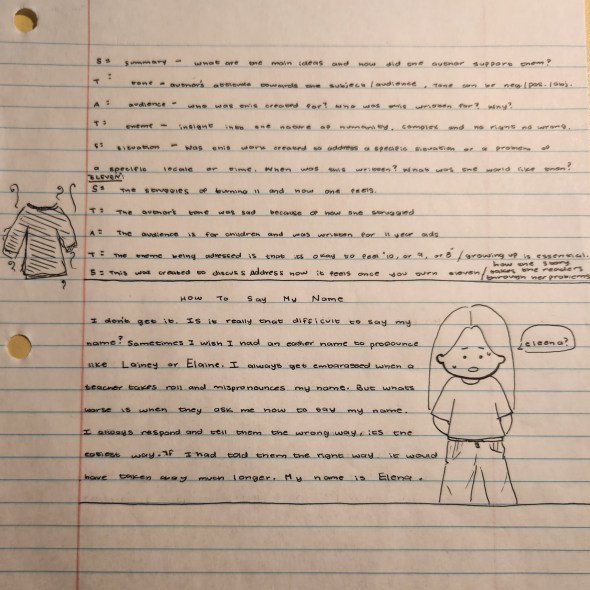 S: summary - what are the main ideas and how did the author support them?
T: tone - author's attitude towards the subject/audience. Tone can be neg/pos. (ob).
A: audience - who was this created for? Who was this written for? Why?
T: theme - insight into the nature of humanity, complex and no right no wrong.
S: situation - was this work created to address a specific situation or a problem of
a specific locale or time. When was this written? What was the world like then?
ELEVEN:
S: The struggles of turning 11 and how one feels.
T: The author's tone was sad because of how she struggled
A: The audience is for children and was written for 11 year olds
T: The theme being adressed is that is okay to feel "10, or 9, or 8"/growing up is essential.
S: This was created to discuss address how it feels once you turn eleven/how one story takes the readers through her problems
How To Say My Name
I don't get it. Is it really that difficult to say my
name? Sometimes I wish I had an easier name to pronounce
like Lainey or Elaine. I always get embarassed when a
teacher takes roll and mispronounces my name. But whats
worse is when they ask me how to say my name.
I always respond and tell them the wrong way, its the
easiest way. If I had told them the right way it would
have taken way much longer. My name is Elena.
eleena?